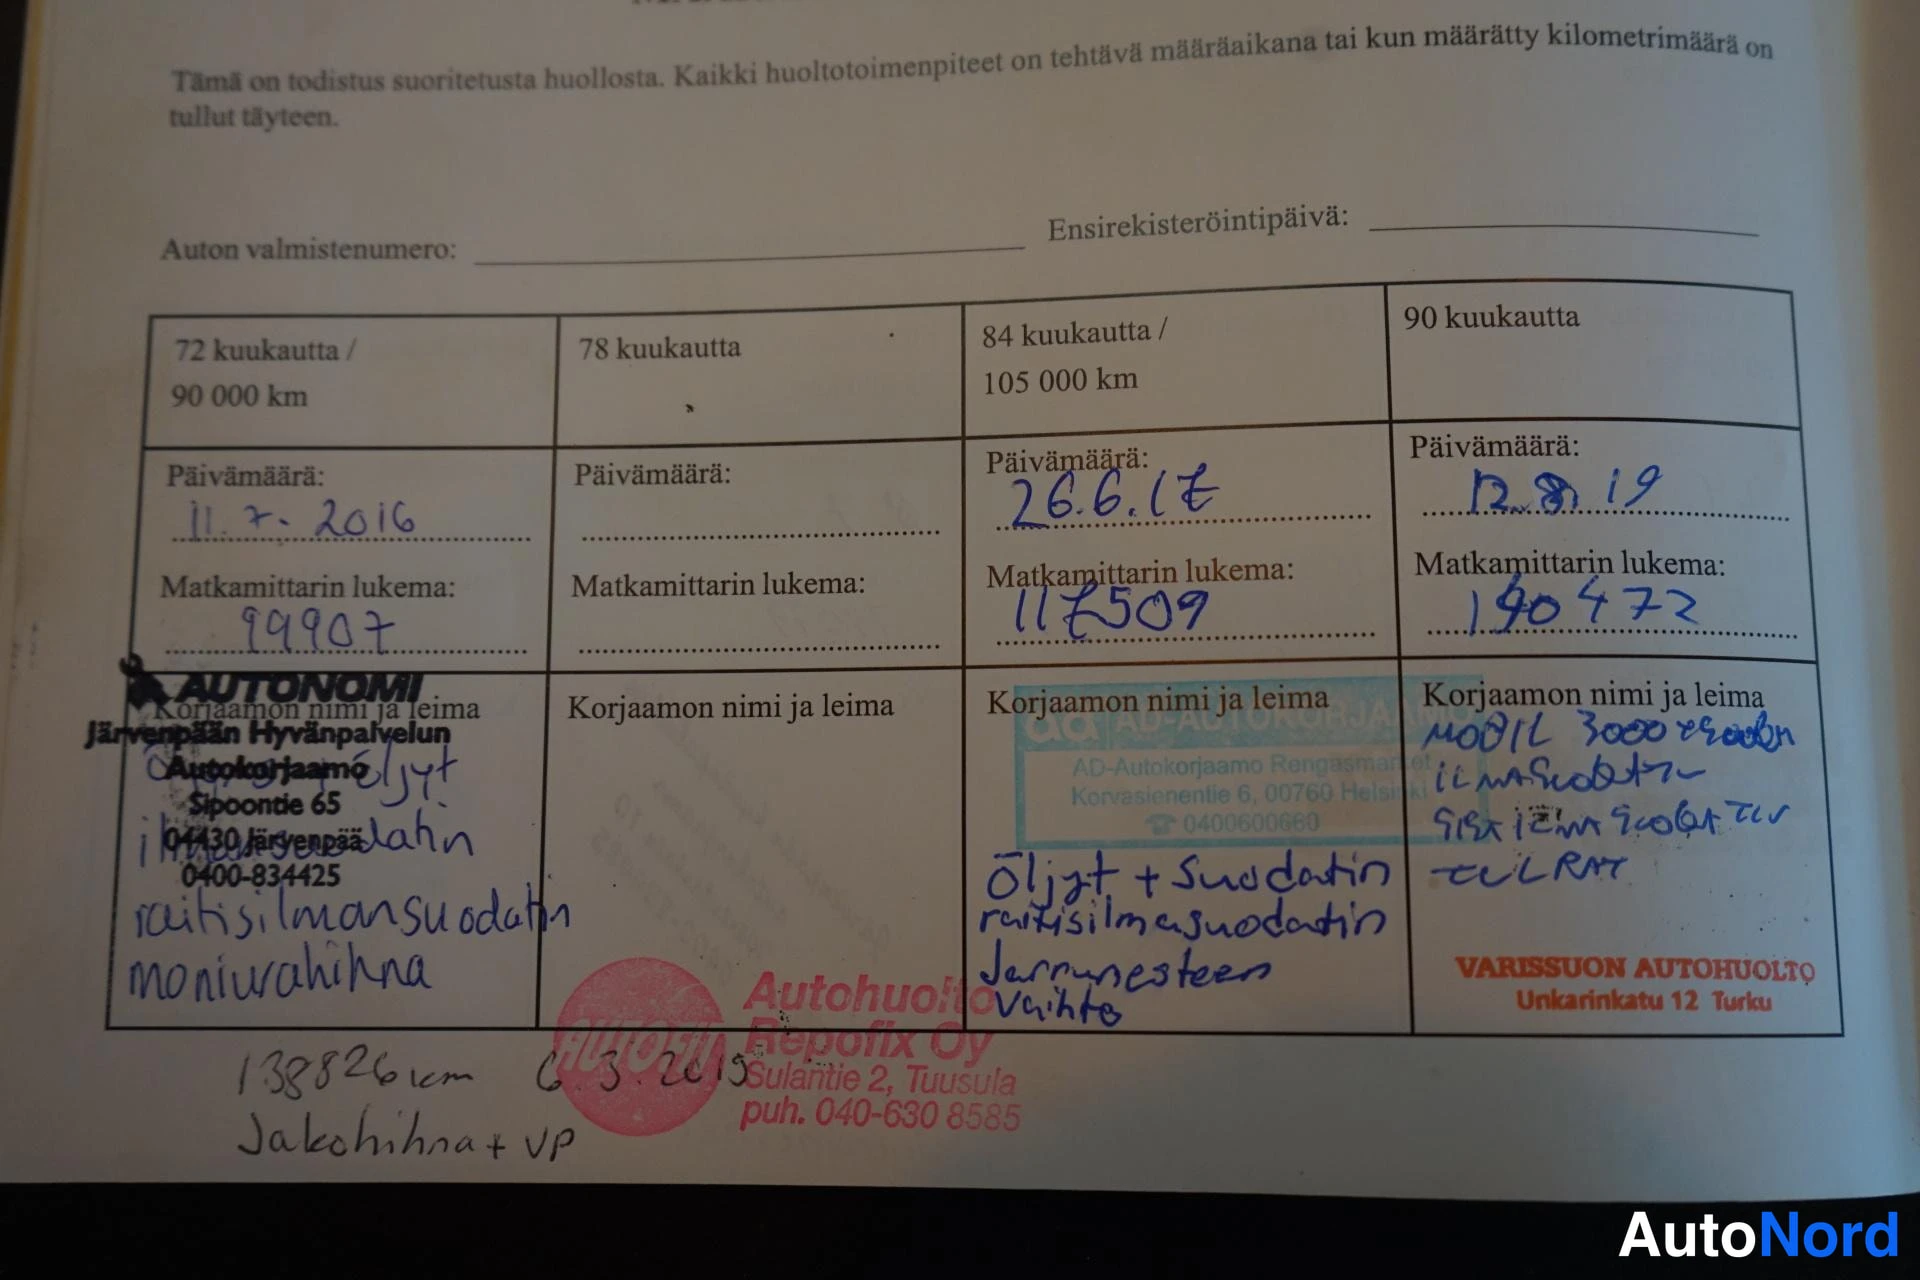 Tämä on todistus suoritetusta huollosta. Kaikki huoltotoimenpiteet on tehtävä määräaikana tai kun määrätty kilometrimäärä on
tullut täyteen.
Auton valmistenumero:
Ensirekisteröintipäivä:
72 kuukautta /
90 000 km
78 kuukautta
84 kuukautta /
105 000 km
90 kuukautta
Päivämäärä:
11.7.2016
Päivämäärä:
Päivämäärä:
26.6.17
Päivämäärä:
12.8.19
Matkamittarin lukema:
99907
Matkamittarin lukema:
Matkamittarin lukema:
117509
Matkamittarin lukema:
190472
AUTONOMI
Korjaamon nimi ja leima
Järvenpään Hyvänpalvelun
Autokorjaamo
öljyt
Sipoontie 65
04430 Järvenpää
0400-834425
raitisilmansuodatin
moniurahihna
Korjaamon nimi ja leima
Korjaamon nimi ja leima
ad AD-AUTOKORJAAMO
AD-Autokorjaamo Rengasmarket
Korvasienentie 6, 00760 Helsinki
☎ 0400600660
Öljyt + Suodatin
raitisilmasuodatin
Jarrunesteen
vaihto
Korjaamon nimi ja leima
MOBIL 3000
ILMASuodATIN
VARISSUON AUTOHUOLTO
Unkarinkatu 12 Turku
138826 km 6.3.2019
Jakohihna + VP
AUTOFIT
Autohuolto
Repofix Oy
Sulantie 2, Tuusula
puh. 040-630 8585
AutoNord